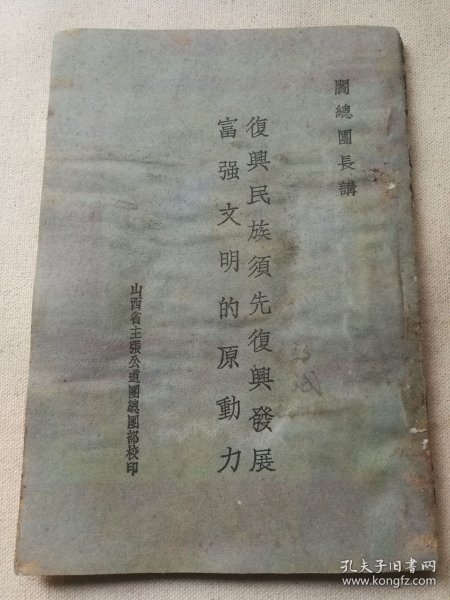 閻總團長講
復興民族須先復興發展
富强文明的原動力
山西省主張公道團總團部校印
孔夫子旧书网
www.kongfz.com